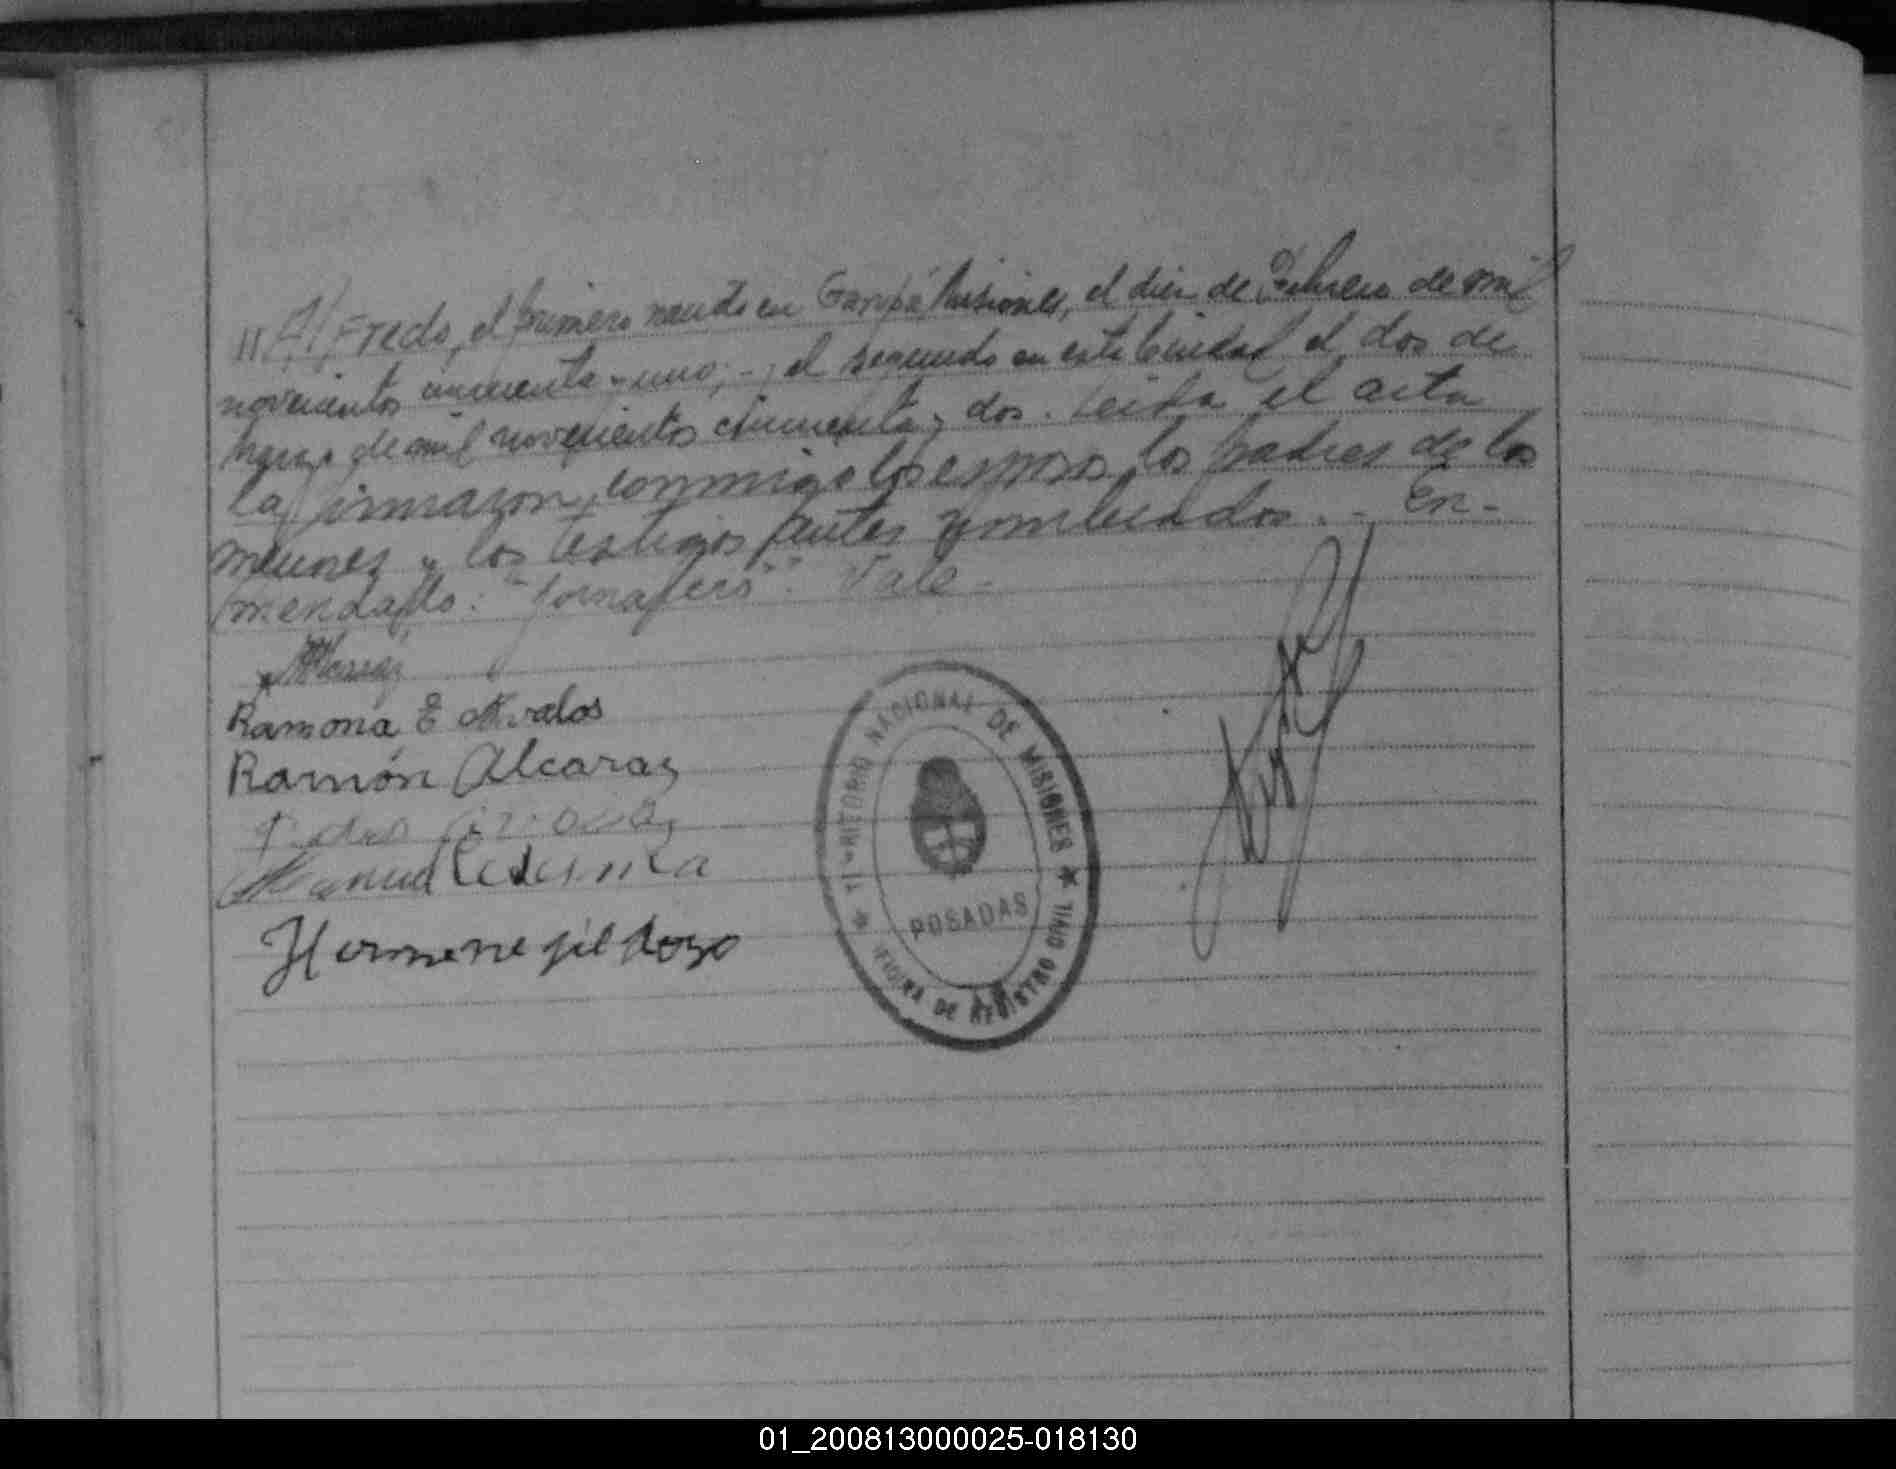 Alfredo, el primero nacido en Garupá Misiones, el diez de Febrero de mil
novecientos cincuenta y uno; y el segundo en esta Ciudad el dos de
de mil novecientos cincuenta y dos. Leida el acta
la firmaron conmigo los esposos, los padres de los
menores y los testigos antes nombrados. - En-
mendado: "jornalero". Vale -
Ramona E Avalos
Ramón Alcaraz
Manuel Ledesma
Hermenejildo
TERRITORIO NACIONAL DE MISIONES
OFICINA DE REGISTRO CIVIL
POSADAS
01_200813000025-018130